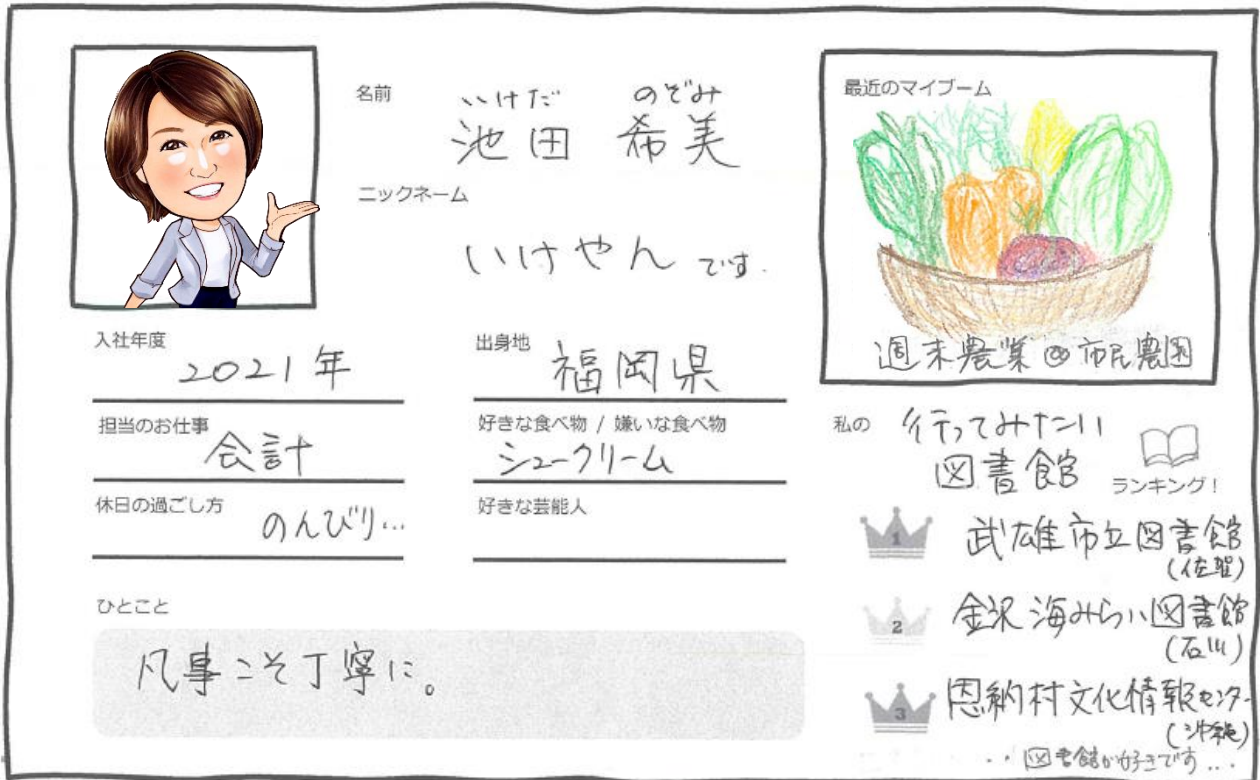 名前
いけだ のぞみ
池田 希美
ニックネーム
いけやん です.
入社年度
2021年
出身地
福岡県
担当のお仕事
会計
好きな食べ物 / 嫌いな食べ物
シュークリーム
休日の過ごし方
のんびり…
好きな芸能人
ひとこと
凡事こそ丁寧に。
最近のマイブーム
週末農業@市民農園
私の 行ってみたい
図書館
ランキング!
1 武雄市立図書館
(佐賀)
2 金沢海みらい図書館
(石川)
3 恩納村文化情報センター
(沖縄)
・・図書館が好きです...